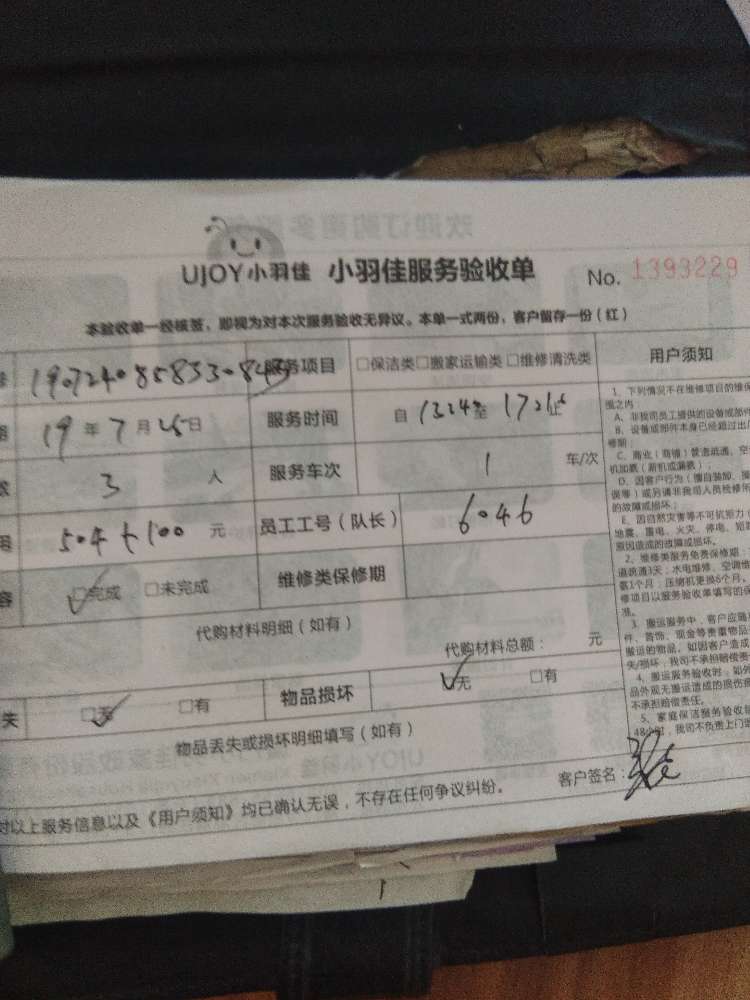 UJOY小羽佳 小羽佳服务验收单 No. 1393229
本验收单一经核签，即视为对本次服务验收无异议。本单一式两份，客户留存一份（红）
服务项目 □保洁类□搬家运输类□维修清洗类 用户须知
19年7月25日 服务时间 自1324至1721止
3 人 服务车次 1 车/次
504+100 元 员工工号（队长） 6046
容 □完成 □未完成 维修类保修期
代购材料明细（如有）
代购材料总额： 元
失 □无 □有 物品损坏 □无 □有
物品丢失或损坏明细填写（如有）
客户签名：
对以上服务信息以及《用户须知》均已确认无误，不存在任何争议纠纷。
1、下列情况不在维修项目的维保
围之内
A、非我司员工提供的设备或部件
B、设备或部件本身已经超过出厂
修期；
C、商业（商铺）管道疏通、空
机加氟（新机或漏氟）；
D、因客户行为（擅自装卸、操
误等）或另请非我司人员检修所
的故障或损坏；
E、因自然灾害等不可抗拒力（
地震、雷电、火灾、停电、短路
原因造成的故障或损坏。
2、维修类服务免费保修期：
道疏通3天；水电维修、空调维
套1个月；压缩机更换6个月。
修项目以服务验收单填写的保
准。
3、搬运服务中，客户应随身
件、首饰、现金等贵重物品
搬运的物品。如因客户造成
失/损坏，我司不承担赔偿责
4、搬运服务验收时，如外
品外观无搬运造成的损伤痕
不承担赔偿责任。
5、家庭保洁服务验收
48小时，我司不负责上门